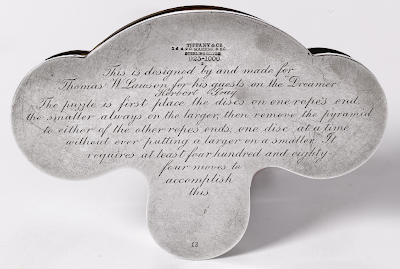 TIFFANY & CO
STERLING SILVER
925-1000
This is designed by and made for
Thomas W. Lawson for his guests on the Dreamer
Herbert Gray
The puzzle is first place the discs on one rope's end,
the smaller always on the larger, then remove the pyramid
to either of the other ropes ends, one disc at a time
without ever putting a larger on a smaller. It
requires at least four hundred and eighty-
four moves to
accomplish
this
13